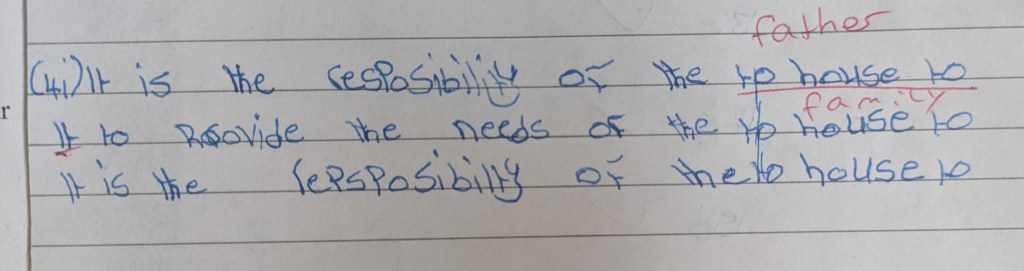 father
(4i) It is the resposibility of the to house to
family
It to Provide the needs of the to house to
It is the repsposibility of the to house to